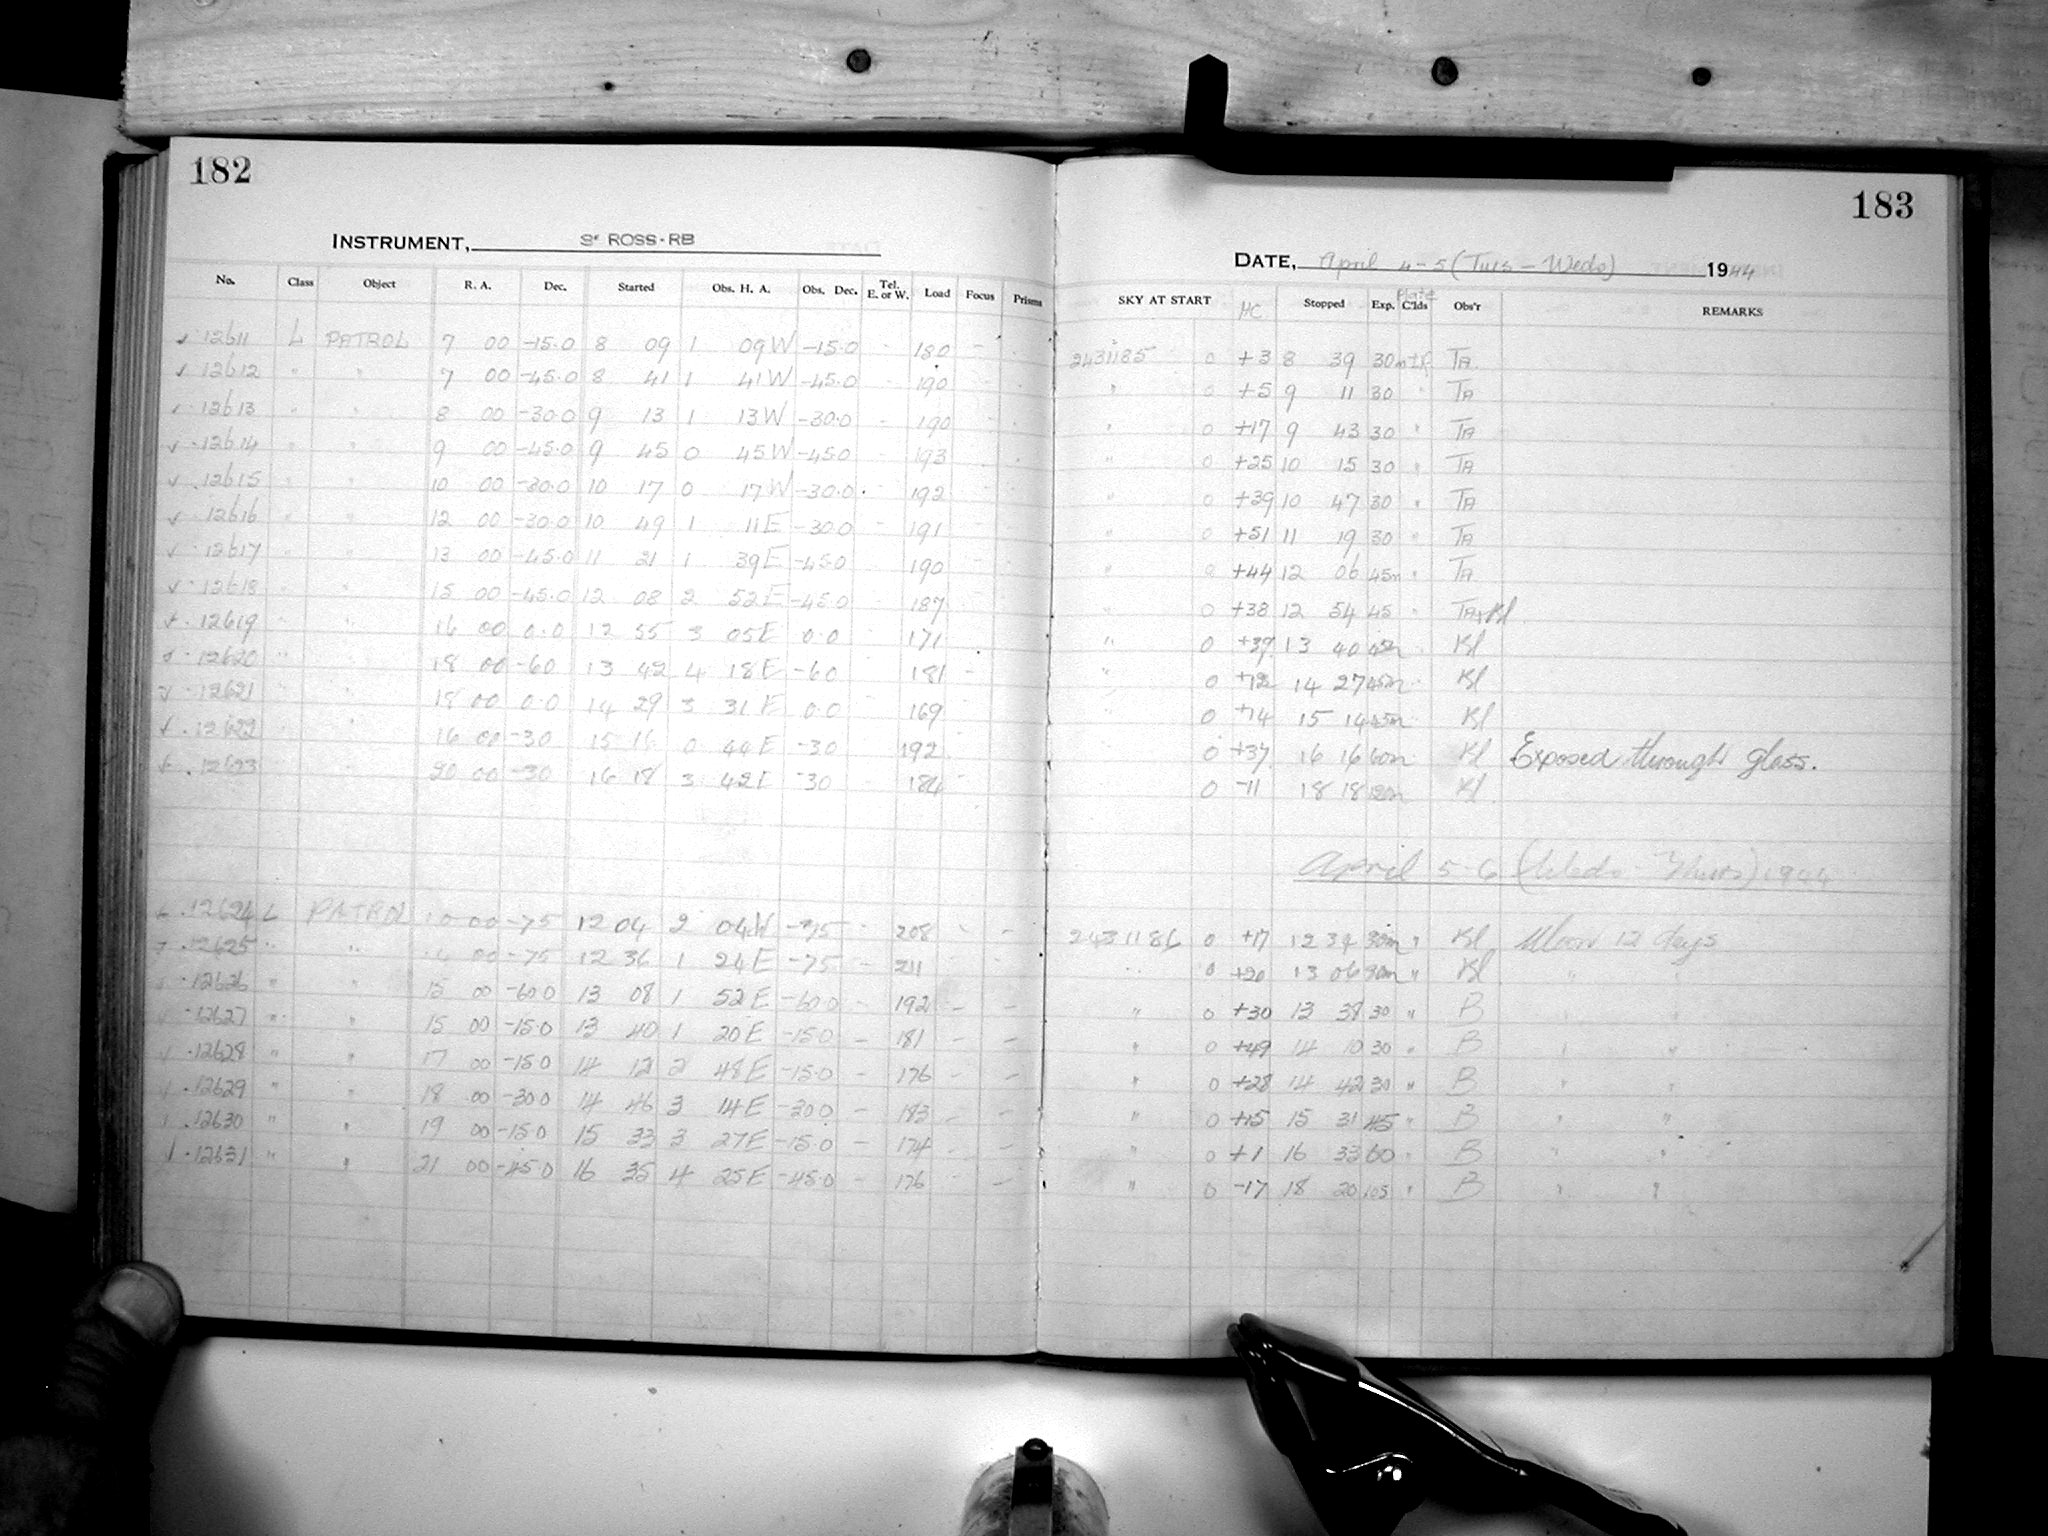 182
INSTRUMENT, 3" ROSS-RB
No. Class Object R. A. Dec. Started Obs. H. A. Obs. Dec. Tel. E. or W. Load Focus Prisms
✓ 12611 L PATROL 7 00 -15.0 8 09 1 09W -15.0 - 180 -
✓ 12612 " " 7 00 -45.0 8 41 1 41W -45.0 - 190 -
✓ 12613 " " 8 00 -30.0 9 13 1 13W -30.0 - 190 -
✓ 12614 " " 9 00 -45.0 9 45 0 45W -45.0 193 -
✓ 12615 " " 10 00 -30.0 10 17 0 17W -30.0 - 192 -
✓ 12616 " " 12 00 -30.0 10 49 1 11E -30.0 - 191 -
✓ 12617 " " 13 00 -45.0 11 21 1 39E -45.0 190 -
✓ 12618 " " 15 00 -45.0 12 08 2 52E -45.0 187
✓ 12619 " " 16 00 0.0 12 55 3 05E 0.0 171
✓ 12620 " " 18 00 -60 13 42 4 18E -60 181 -
✓ 12621 " " 18 00 0.0 14 29 3 31E 0.0 169
✓ 12622 16 00 -30 15 16 0 44E -30 192
✓ 12623 20 00 -30 16 18 3 42E -30 184
✓ 12624 L PATROL 10 00 -75 12 04 2 04W -75 208 - -
✓ 12625 " " 14 00 -75 12 36 1 24E -75 - 211
✓ 12626 " " 15 00 -60.0 13 08 1 52E -60.0 - 192 - -
✓ 12627 " " 15 00 -15.0 13 40 1 20E -15.0 - 181 - -
✓ 12628 " " 17 00 -15.0 14 12 2 48E -15.0 - 176 - -
✓ 12629 " " 18 00 -30.0 14 46 3 14E -30.0 - 183 - -
✓ 12630 " " 19 00 -15.0 15 33 3 27E -15.0 - 174 - -
✓ 12631 " " 21 00 -45.0 16 35 4 25E -45.0 - 176 - -
183
DATE, April 4-5 (Tues - Weds) 1944
SKY AT START HC Stopped Exp. Plate C'lds Obs'r REMARKS
2431185 0 +3 8 39 30m IR TA
" 0 +5 9 11 30 " TA
" 0 +17 9 43 30 " TA
" 0 +25 10 15 30 " TA
" 0 +39 10 47 30 " TA
" 0 +51 11 19 30 " TA
" 0 +44 12 06 45m " TA
" 0 +38 12 54 45 " TA+Kl
" 0 +39 13 40 45m Kl
" 0 +12 14 27 45m Kl
0 +14 15 14 45m Kl
0 +37 16 16 60m Kl Exposed through glass.
0 -11 18 18 120m Kl
April 5-6 (Weds - Thurs) 1944
2431186 0 +17 12 34 30m " Kl Moon 12 days
" 0 +20 13 06 30m " Kl " "
" 0 +30 13 38 30 " B " "
" 0 +49 14 10 30 " B " "
" 0 +28 14 42 30 " B " "
" 0 +15 15 31 45 " B " "
" 0 +1 16 33 60 " B " "
" 0 -17 18 20 105 " B " "